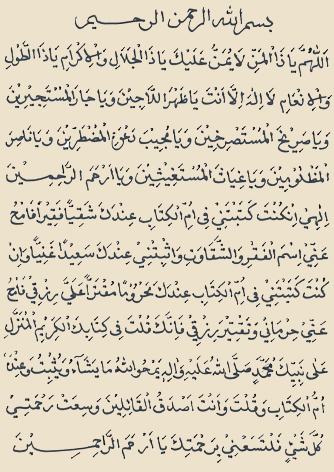 بسم الله الرحمن الرحيم
اَللّٰهُمَّ يَا ذَا الْمَنِّ لَا يُمَنُّ عَلَيْكَ يَا ذَا الْجَلَالِ وَالْاِكْرَامِ يَا ذَا الطَّوْلِ
وَالْاِنْعَامِ لَا اِلٰهَ اِلَّا اَنْتَ يَا ظَهْرَ اللَّاجِينَ وَيَا جَارَ الْمُسْتَجِيرِينَ
وَيَا صَرِيخَ الْمُسْتَصْرِخِينَ وَيَا مُجِيبَ دَعْوَةِ الْمُضْطَرِّينَ وَيَا نَاصِرَ
الْمَظْلُومِينَ وَيَا غِيَاثَ الْمُسْتَغِيثِينَ وَيَا اَرْحَمَ الرَّاحِمِينَ
اِلٰهِي اِنْ كُنْتَ كَتَبْتَنِي فِي اُمِّ الْكِتَابِ عِنْدَكَ شَقِيًّا فَقِيرًا فَامْحُ
عَنِّي اسْمَ الْفَقْرِ وَالشَّقَاوَةِ وَاثْبِتْنِي عِنْدَكَ سَعِيدًا غَنِيًّا وَاِنْ
كُنْتَ كَتَبْتَنِي فِي اُمِّ الْكِتَابِ عِنْدَكَ مَحْرُومًا مُقَتَّرًا عَلَيَّ رِزْقِي فَامْحُ
عَنِّي حِرْمَانِي وَتَقْتِيرَ رِزْقِي فَاِنَّكَ قُلْتَ فِي كِتَابِكَ الْكَرِيمِ الْمُنَزَّلِ
عَلٰى نَبِيِّكَ مُحَمَّدٍ صَلَّى اللهُ عَلَيْهِ وَاٰلِهِ يَمْحُوا اللهُ مَا يَشَاءُ وَيُثْبِتُ وَعِنْدَهُ
اُمُّ الْكِتَابِ وَقُلْتَ وَاَنْتَ اَصْدَقُ الْقَائِلِينَ وَسِعَتْ رَحْمَتِي
كُلَّ شَيْءٍ فَلْتَسَعْنِي بِرَحْمَتِكَ يَا اَرْحَمَ الرَّاحِمِينَ